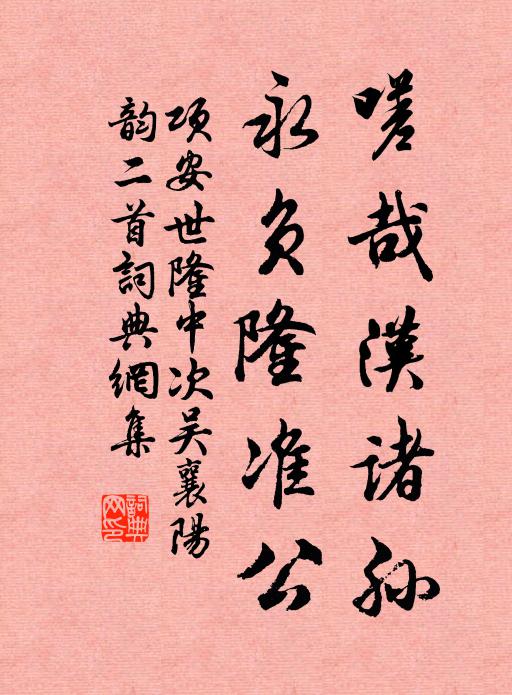 嗟哉漢诸孙
永负隆准公
项安世隆中次吴襄陽
韵二首詞典網集
詞典
网印